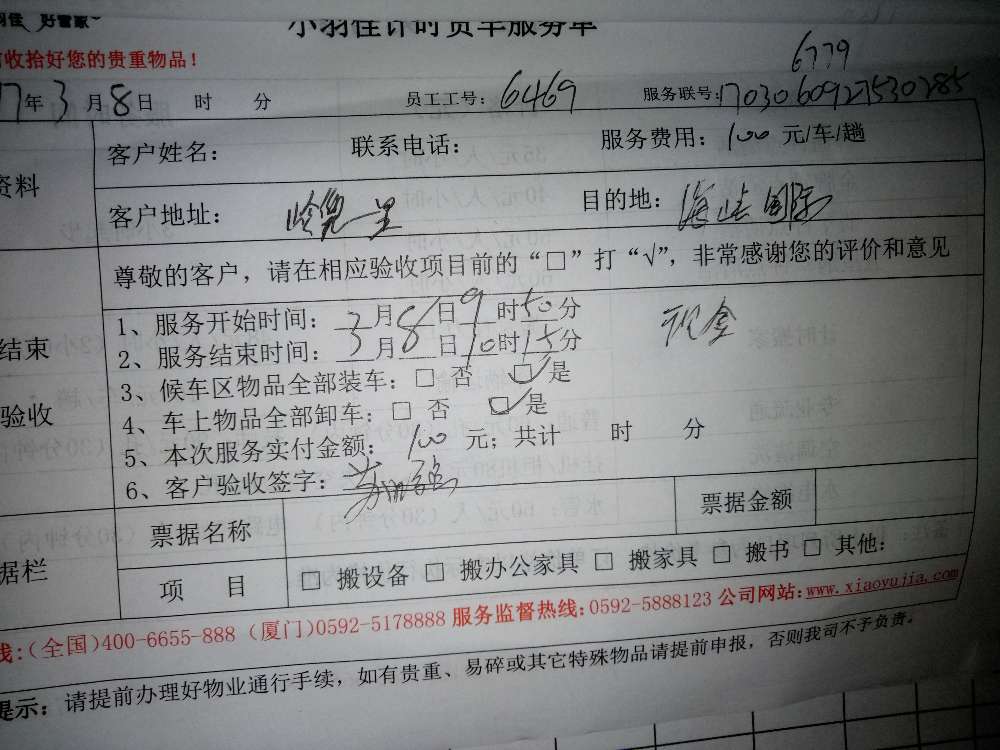 好管家
小羽佳计时货车服务单
收拾好您的贵重物品！
6779
17年3月8日 时 分 员工工号：6469 服务联号：
客户姓名： 联系电话： 服务费用：100 元/车/趟
资料
客户地址： 目的地：海峡国际
尊敬的客户，请在相应验收项目前的“□”打“√”，非常感谢您的评价和意见
1、服务开始时间：3月8日9时50分 现金
结束
2、服务结束时间：3月8日10时15分
3、候车区物品全部装车：□ 否 ☑ 是
验收
4、车上物品全部卸车：□ 否 ☑ 是
5、本次服务实付金额：100 元；共计 时 分
6、客户验收签字：
票据名称 票据金额
据栏
项 目 □ 搬设备 □ 搬办公家具 □ 搬家具 □ 搬书 □ 其他：
线：（全国）400-6655-888（厦门）0592-5178888 服务监督热线：0592-5888123 公司网站：www.xiaoyujia.com
提示：请提前办理好物业通行手续，如有贵重、易碎或其它特殊物品请提前申报，否则我司不予负责。